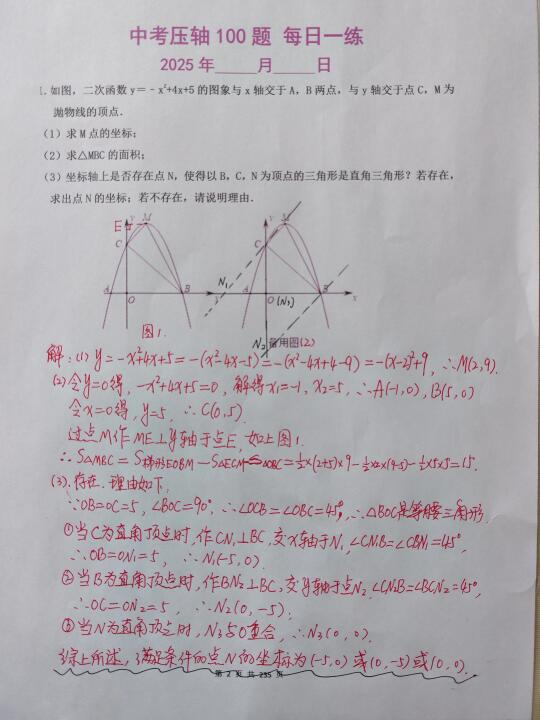 中考压轴100题 每日一练
2025年_____月_____日
1.如图，二次函数y＝﹣x²+4x+5的图象与x轴交于A，B两点，与y轴交于点C，M为
抛物线的顶点．
（1）求M点的坐标；
（2）求△MBC的面积；
（3）坐标轴上是否存在点N，使得以B，C，N为顶点的三角形是直角三角形？若存在，
求出点N的坐标；若不存在，请说明理由．
E y M y M
C C N₁
A O B A O (N₃) B x
图1. N₂ 备用图(2)
解：(1) y=-x²+4x+5=-(x²-4x-5)=-(x²-4x+4-9)=-(x-2)²+9, ∴M(2,9).
(2)令y=0得, -x²+4x+5=0, 解得x₁=-1, x₂=5, ∴A(-1,0), B(5,0)
令x=0得, y=5, ∴C(0,5).
过点M作ME⊥y轴于点E, 如上图1.
∴S△MBC=S梯形EOBM-S△ECM-S△OBC=½×(2+5)×9-½×2×(9-5)-½×5×5=15.
(3).存在. 理由如下,
∵OB=OC=5, ∠BOC=90°, ∴∠OCB=∠OBC=45°, ∴△BOC是等腰三角形.
①当C为直角顶点时, 作CN₁⊥BC, 交x轴于N₁, ∠CN₁B=∠CBN₁=45°,
∴OB=ON₁=5, ∴N₁(-5,0).
②当B为直角顶点时, 作BN₂⊥BC, 交y轴于点N₂, ∠CN₂B=∠BCN₂=45°,
∴OC=ON₂=5, ∴N₂(0,-5).
③当N为直角顶点时, N₃与O重合, ∴N₃(0,0).
综上所述, 满足条件的点N的坐标为(-5,0)或(0,-5)或(0,0).
第 2 页 共 255 页